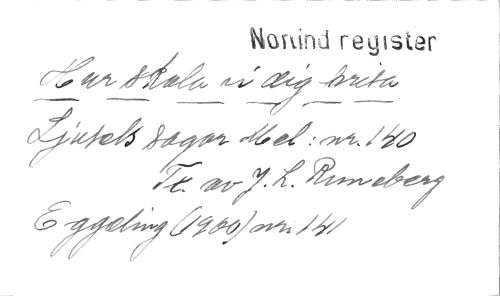 Norlind register
Hur skola vi dig prisa
Ljusets sagor Mel: nr. 140
Tx. av J. L. Runeberg
Eggeling (1900) nr. 141